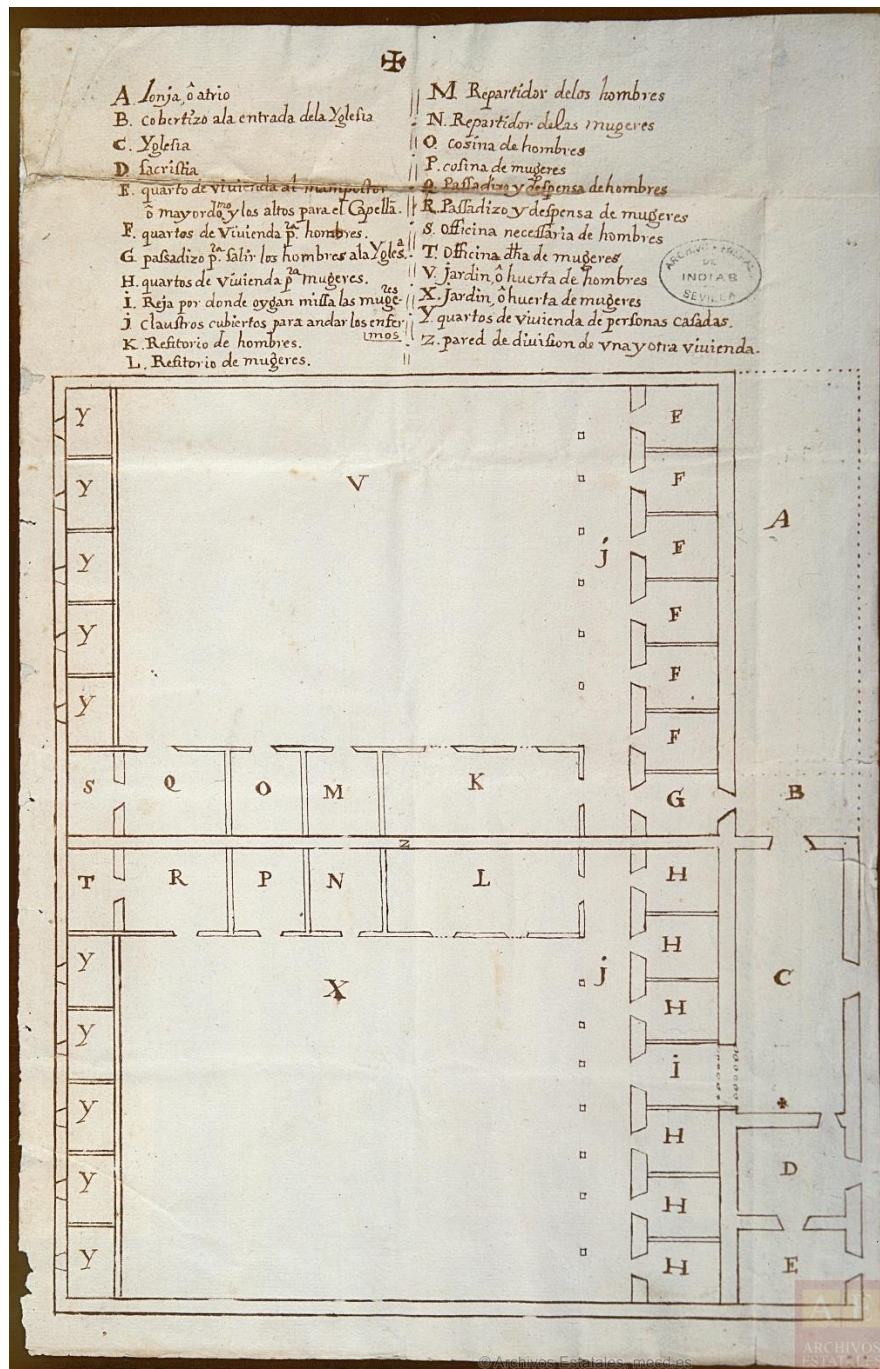 A. lonja, ô atrio
B. cobertizo ala entrada dela Yglesia
C. Yglesia
D sacristia
E. quarto de vivienda al mampostor
ô mayordᵐᵒ y los altos para el Capellã.
F. quartos de Vivienda pᵃ. hombres.
G passadizo pᵃ. salir los hombres ala Yglesᵃ.
H. quartos de vivienda pʳᵃ mugeres.
i. Reja por donde oygan missa las mugeʳᵉˢ
j claustros cubiertos para andar los enfer
mos
K. Refitorio de hombres.
L. Refitorio de mugeres.
M. Repartidor delos hombres
N. Repartidor delas mugeres
O. cosina de hombres
P. cosina de mugeres
Q. Passadizo y despensa de hombres
R. Passadizo y despensa de mugeres
S. officina necessaria de hombres
T. Officina dha de mugeres
V. jardin, ô huerta de hombres
X. Jardin, ô huerta de mugeres
Y. quartos de vivienda de personas casadas.
Z. pared de division de vna y otra vivienda.
ARCHIVO GENERAL
DE
INDIAS
SEVILLA
Y
V
F
Y
F
A
Y
F
j
Y
F
Y
F
F
S
Q
O
M
K
G
B
Z
T
R
P
N
L
H
Y
X
j
H
C
Y
H
i
Y
H
D
Y
H
Y
H
E
AE
ARCHIVOS
ESTATALES
© Archivos Estatales, mecd.es